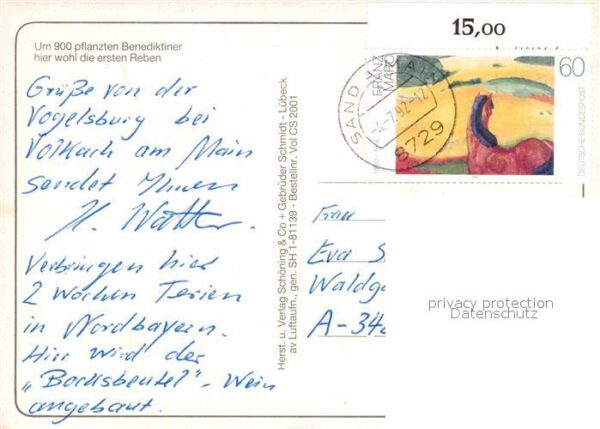 15,00
Um 900 pflanzten Benediktiner
hier wohl die ersten Reben
FRANZ MARC
60
DEUTSCHE BUNDESPOST
SAND A MAIN
-7.92-12
8729
Grüße von der
Vogelsburg bei
Volkach am Main
sendet Ihnen
H. Watter
Verbringen hier
2 Wochen Ferien
in Nordbayern.
Hier wird der
„Bocksbeutel"-Wein
angebaut.
Herst. u. Verlag Schöning & Co + Gebrüder Schmidt - Lübeck
av Luftaufn., gen. SH 1-81139 - Bestellnr. Vol CS 2001
Frau
Eva S
Waldga
A-342
privacy protection
Datenschutz